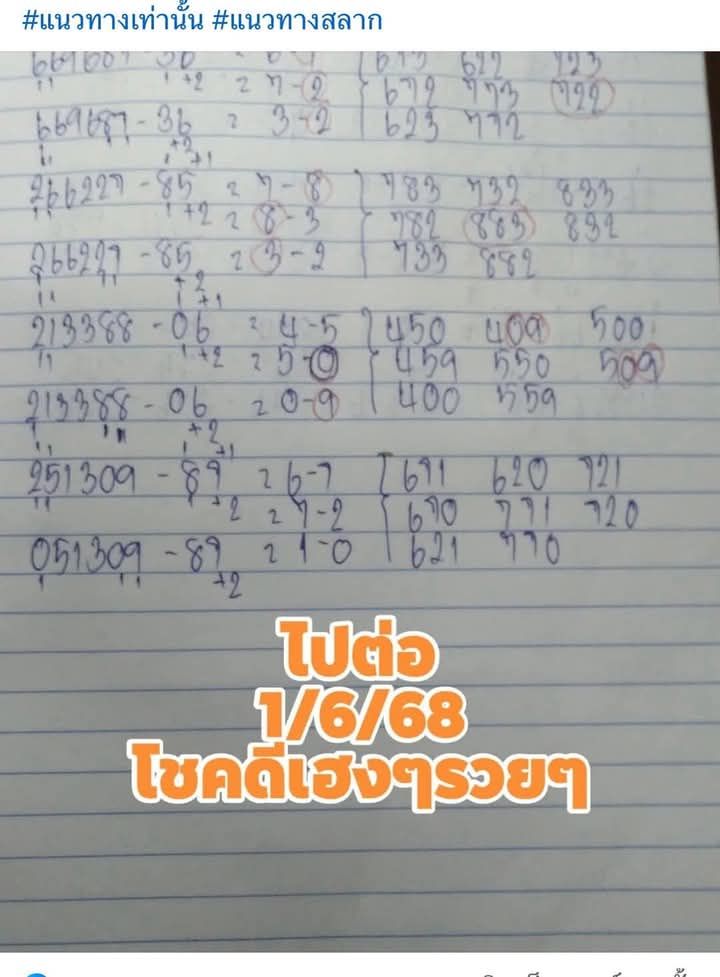 #แนวทางเท่านั้น #แนวทางสลาก
1+2 = 7-2 672 773 722
669687-36 = 3-2 623 772
+2
1 +1
266227-85 = 7-8 783 732 833
1+2 = 8-3 782 883 832
266227-85 = 3-2 733 882
+2
1 +1
213388-06 = 4-5 450 409 500
1+2 = 5-0 459 550 509
213388-06 = 0-9 400 559
+2
1 +1
251309-89 = 6-7 671 620 721
1+2 = 7-2 670 771 720
051309-89 = 1-0 621 770
+2
ไปต่อ
1/6/68
โชคดีเฮงๆรวยๆ